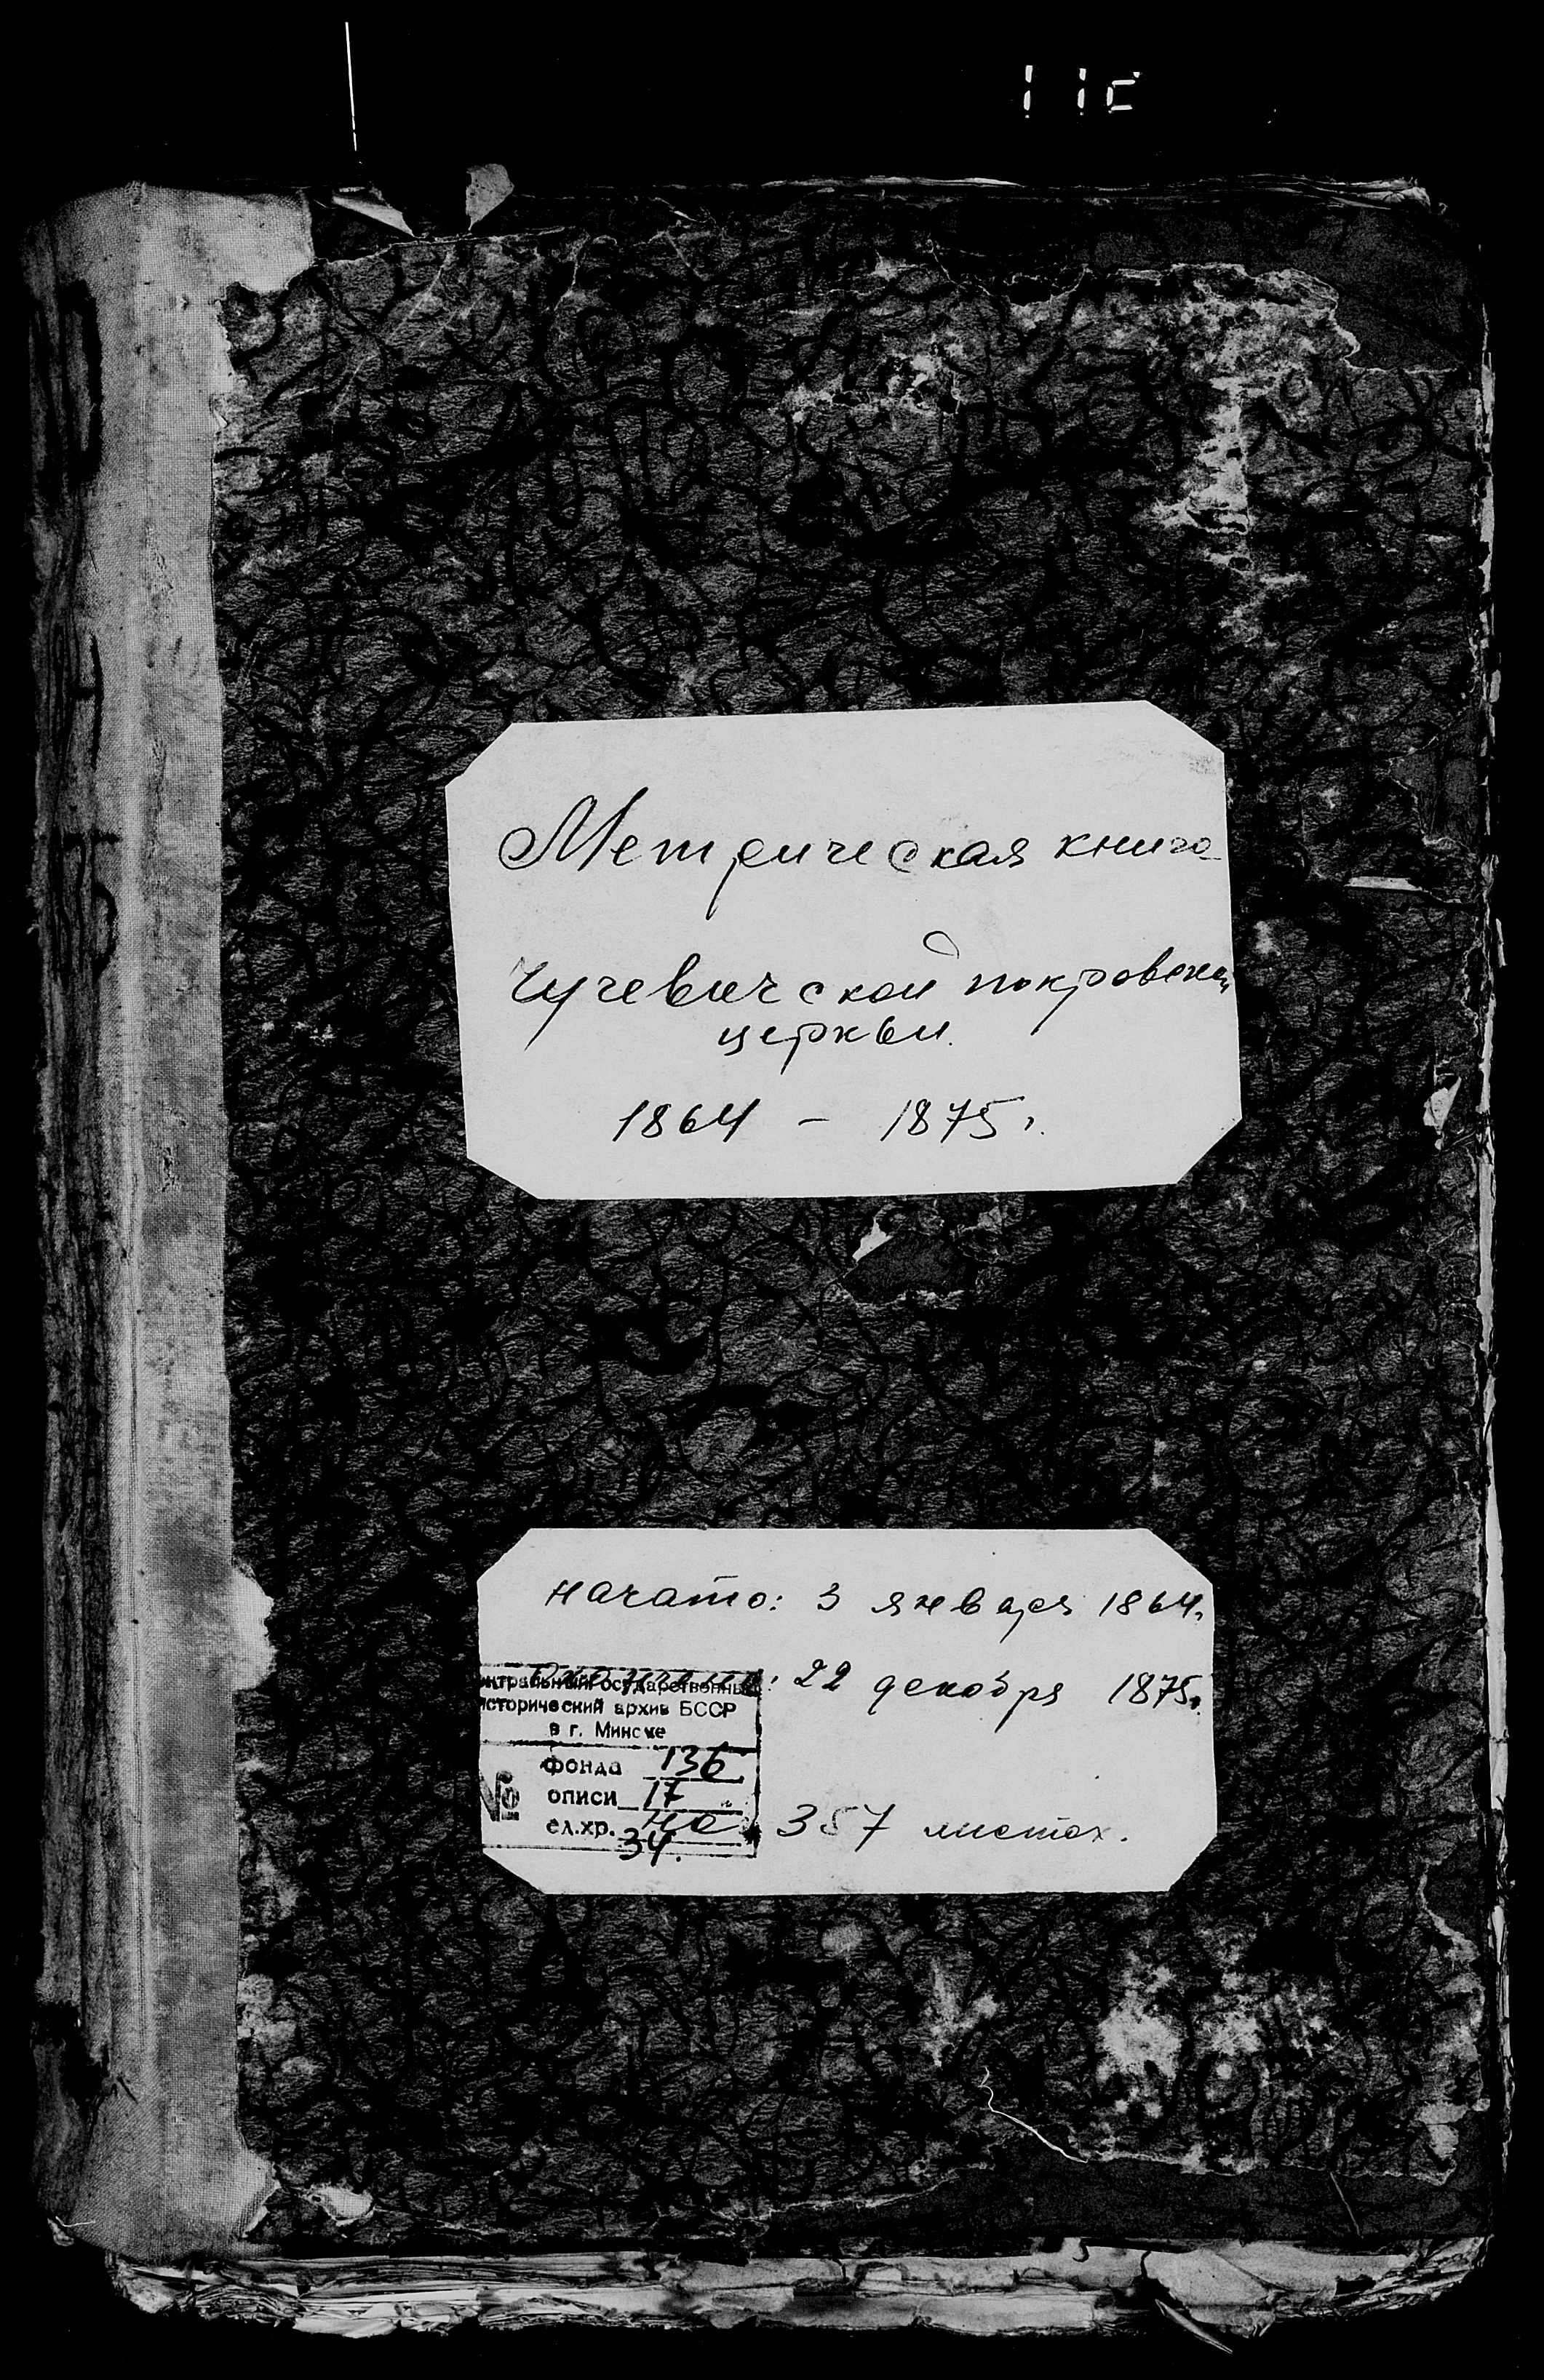 Метрическая книга
Чучевичской покровской
церкви.
1864 - 1875г.
начато: 3 января 1864г.
окончено: 22 декабря 1875г.
Центральный Государственный
исторический архив БССР
в г. Минске
№
фонда 136
описи 17
ед.хр.
34.
357 листах.